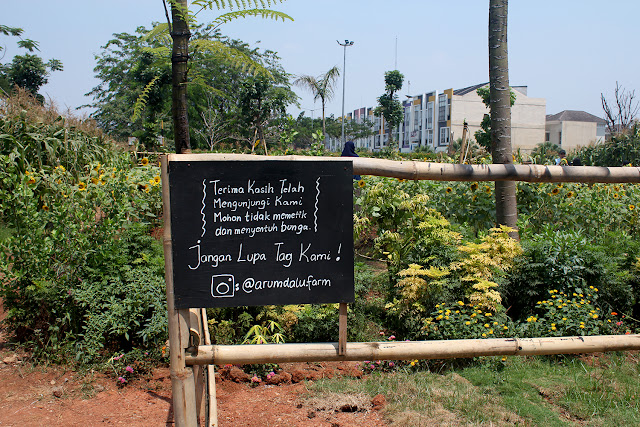 Terima Kasih Telah
Mengunjungi Kami
Mohon tidak memetik
dan menyentuh bunga.
Jangan Lupa Tag Kami !
: @arumdalufarm